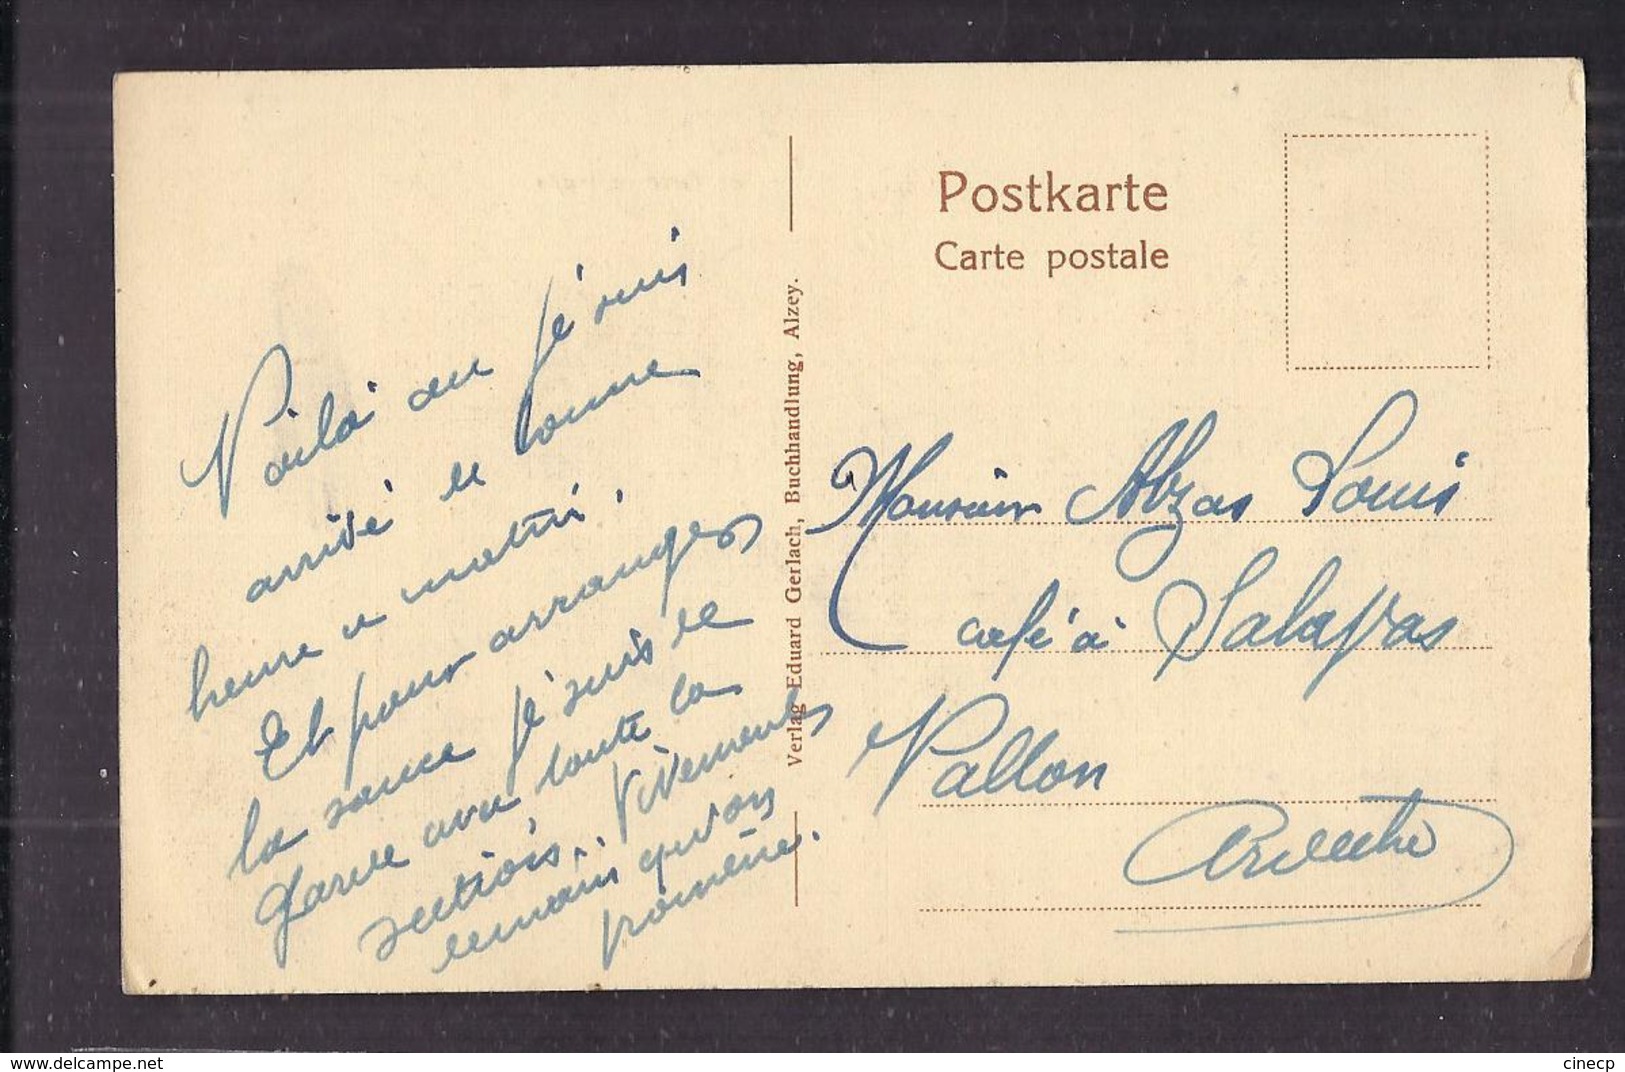 Voilà ou Jé suis
arrivé ee bonne
heure a matin.
Et pour arranger
la sauce Jé suis de
Garde avec toute la
section. Vivement
demain qu'on
promène.
Postkarte
Carte postale
Verlag Eduard Gerlach, Buchhandlung, Alzey.
Monsieur Abzas Louis
café à Salapras
Vallon
Ardeche
cinecp